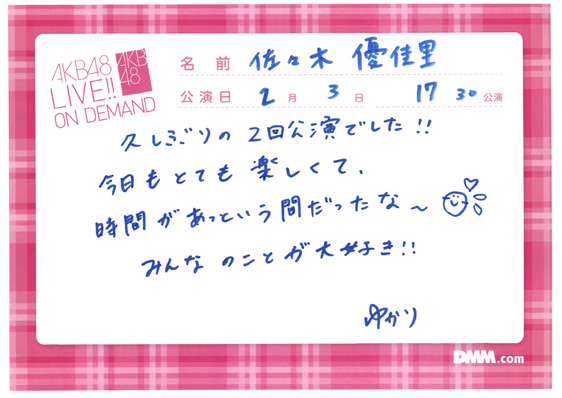 AKB48
LIVE!!
ON DEMAND
AKB
48
名前 佐々木 優佳里
公演日 2月 3日 17 30 公演
久しぶりの 2回公演でした!!
今日もとても 楽しくて、
時間があっという間だったな〜
みんな のことが大好き!!
ゆかり
DMM.com